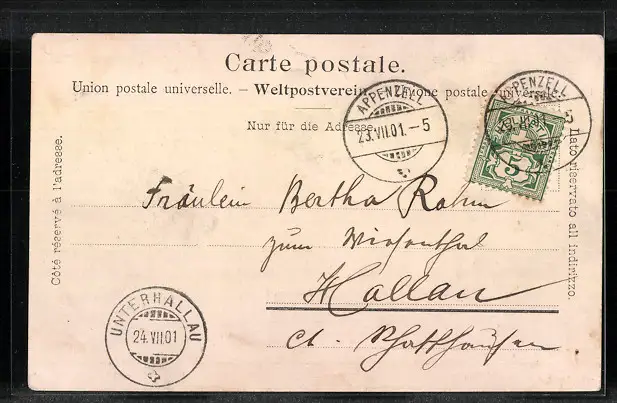 Carte postale.
Union postale universelle. – Weltpostverein. – Unione postale universale.
Nur für die Adresse.
Côté réservé à l'adresse.
Lato riservato all' indirizzo.
APPENZELL
23.VII.01.–5
APPENZELL
23.VII.01.–5
5
Fräulein Bertha Rahm
zum Wiesenthal
Hallau
Ct. Schaffhausen
UNTERHALLAU
24.VII.01